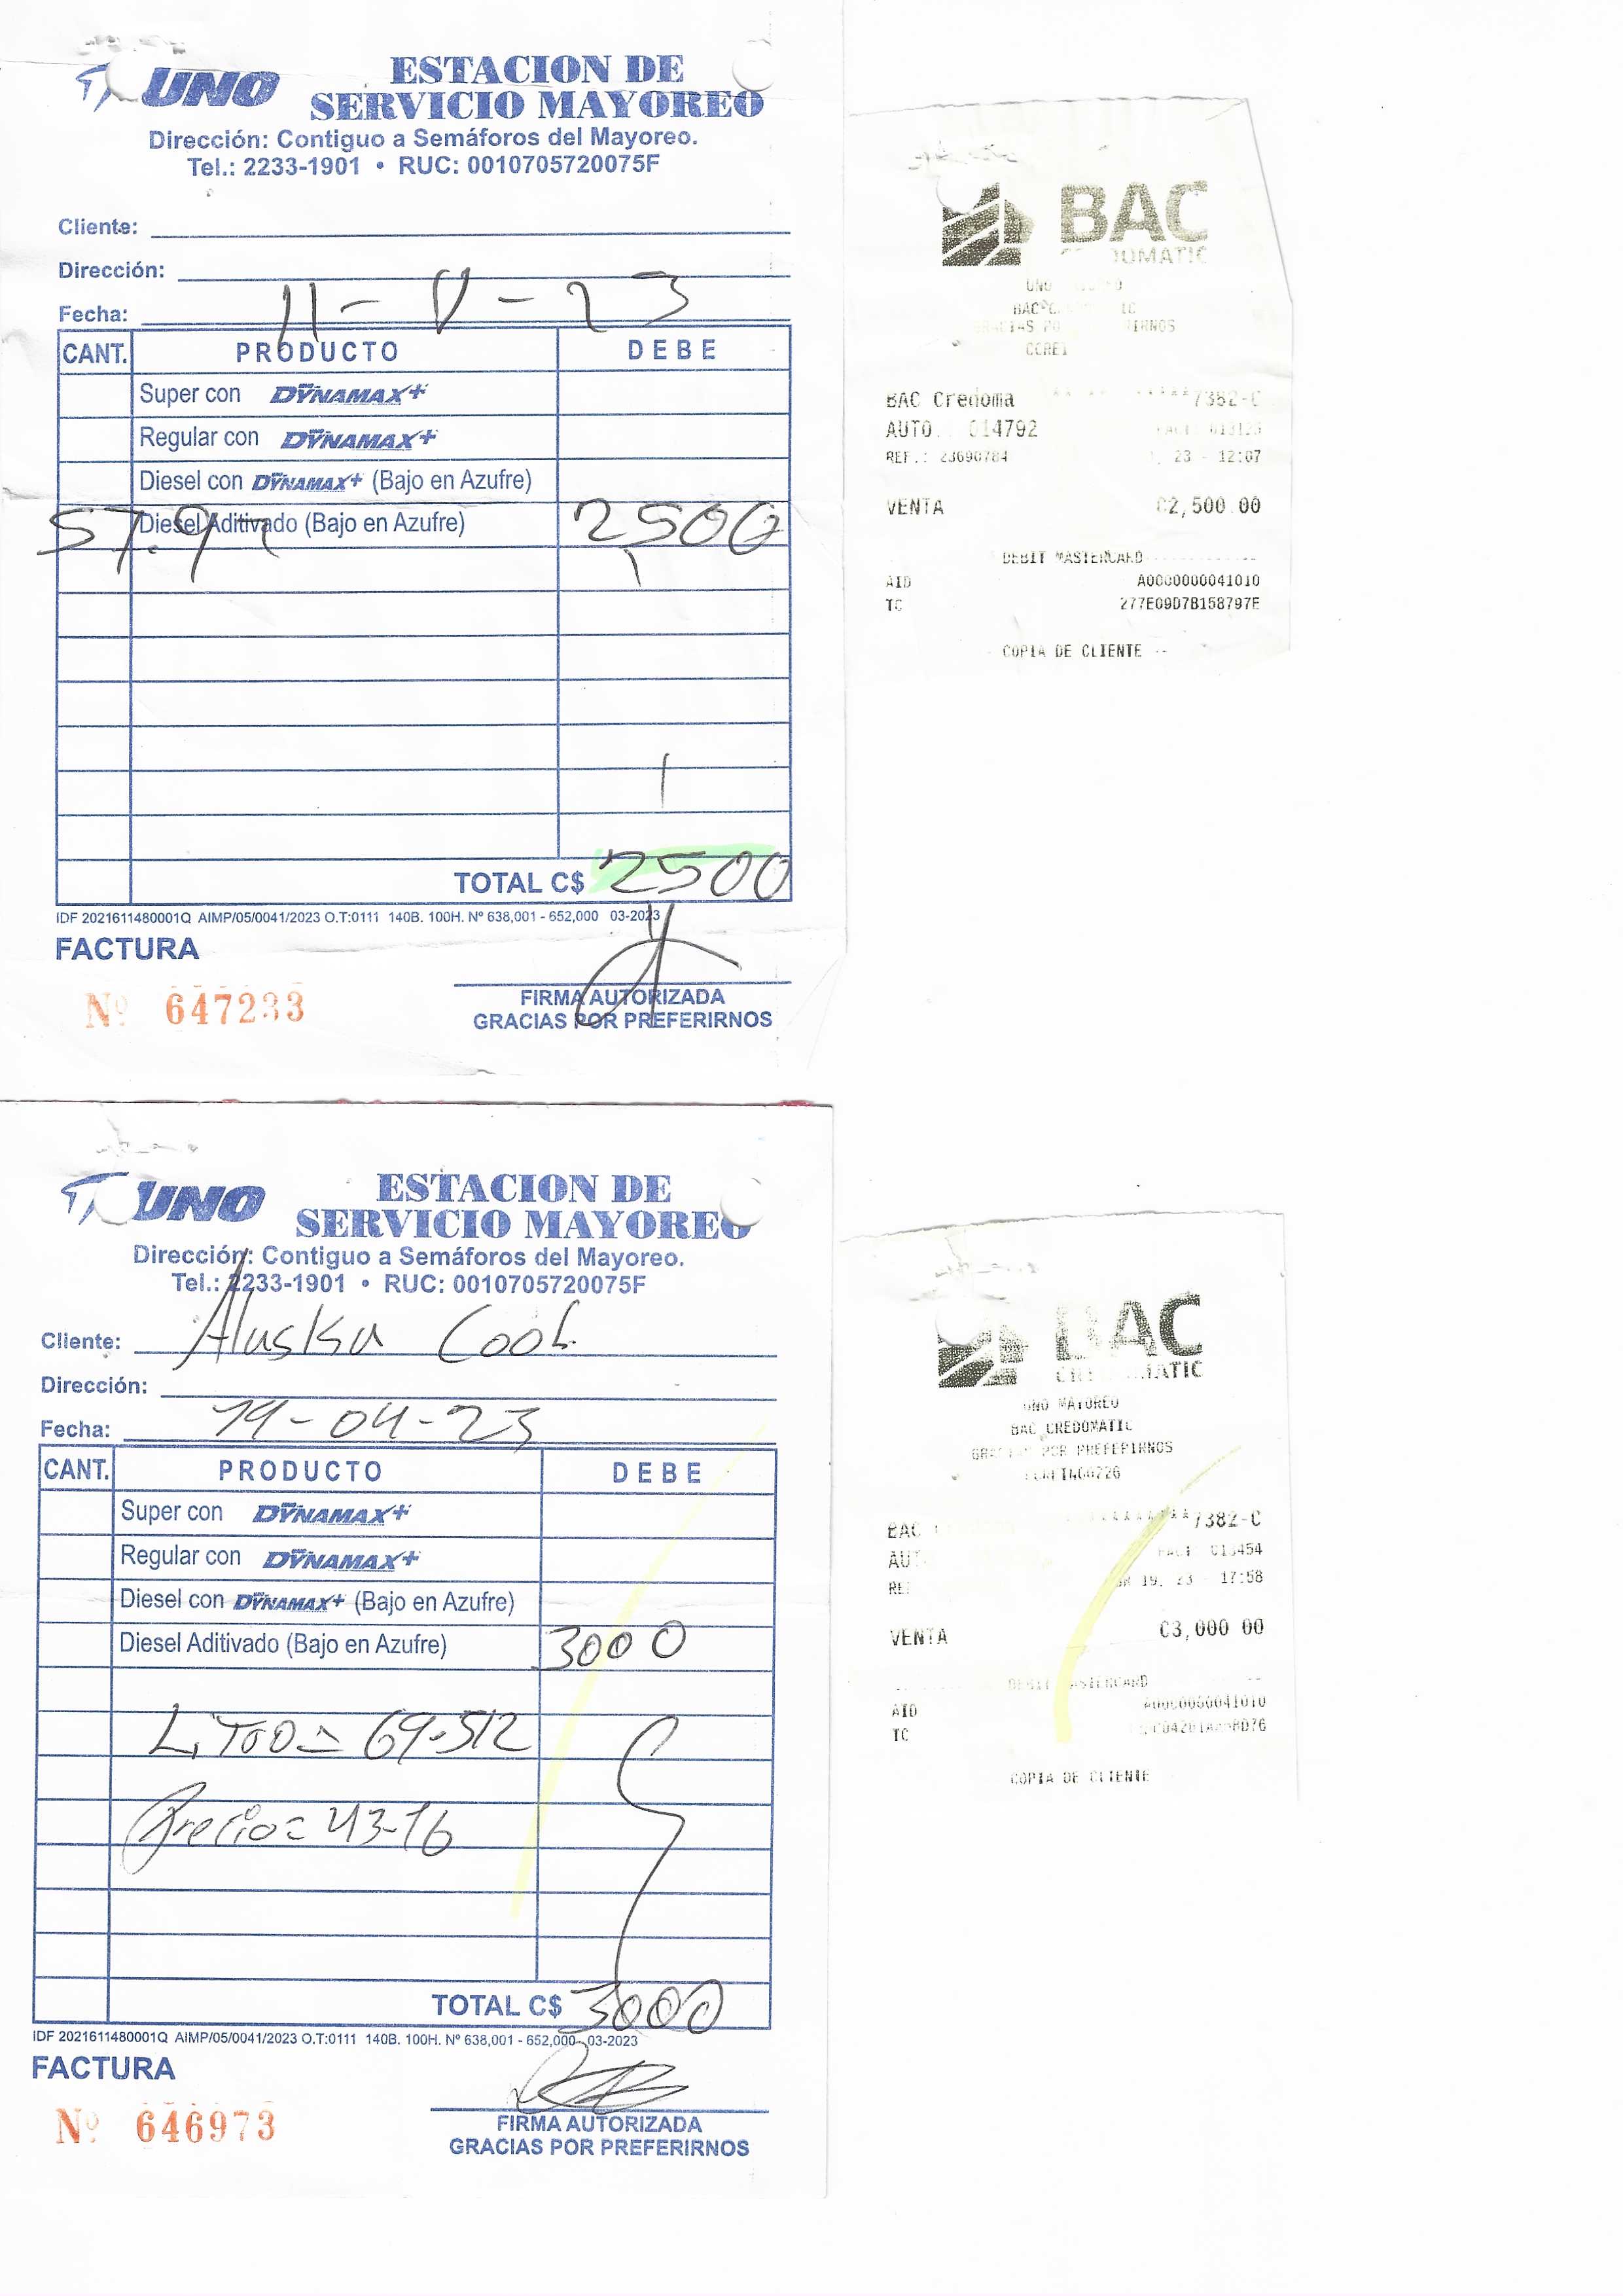 UNO
ESTACION DE
SERVICIO MAYOREO
Dirección: Contiguo a Semáforos del Mayoreo.
Tel.: 2233-1901 • RUC: 0010705720075F
Cliente:
Dirección:
Fecha: 11-V-23
CANT. PRODUCTO DEBE
Super con DYNAMAX+
Regular con DYNAMAX+
Diesel con DYNAMAX+ (Bajo en Azufre)
57.9 Diesel Aditivado (Bajo en Azufre) 2500
TOTAL C$ 2500
IDF 2021611480001Q AIMP/05/0041/2023 O.T:0111 140B. 100H. Nº 638,001 - 652,000 03-2023
FACTURA
Nº 647233
FIRMA AUTORIZADA
GRACIAS POR PREFERIRNOS
BAC
UNO
BAC Credoma 7382-C
AUTO. 014792
REF.: 23690784 23 - 12:07
VENTA C2,500.00
DEBIT MASTERCARD
AID A0000000041010
TC 277E09D7B158797E
COPIA DE CLIENTE --
UNO
ESTACION DE
SERVICIO MAYOREO
Dirección: Contiguo a Semáforos del Mayoreo.
Tel.: 2233-1901 • RUC: 0010705720075F
Cliente: Alaska Cool
Dirección:
Fecha: 19-04-23
CANT. PRODUCTO DEBE
Super con DYNAMAX+
Regular con DYNAMAX+
Diesel con DYNAMAX+ (Bajo en Azufre)
Diesel Aditivado (Bajo en Azufre) 3000
69.512
Precio= 43-16
TOTAL C$ 3000
IDF 2021611480001Q AIMP/05/0041/2023 O.T:0111 140B. 100H. Nº 638,001 - 652,000 03-2023
FACTURA
Nº 646973
FIRMA AUTORIZADA
GRACIAS POR PREFERIRNOS
BAC
UNO MAYOREO
BAC CREDOMATIC
POR PREFERIRNOS
BAC 7382-C
FACT: 013454
19, 23 - 17:58
VENTA C3,000.00
AID A0000000041010
TC
COPIA DE CLIENTE